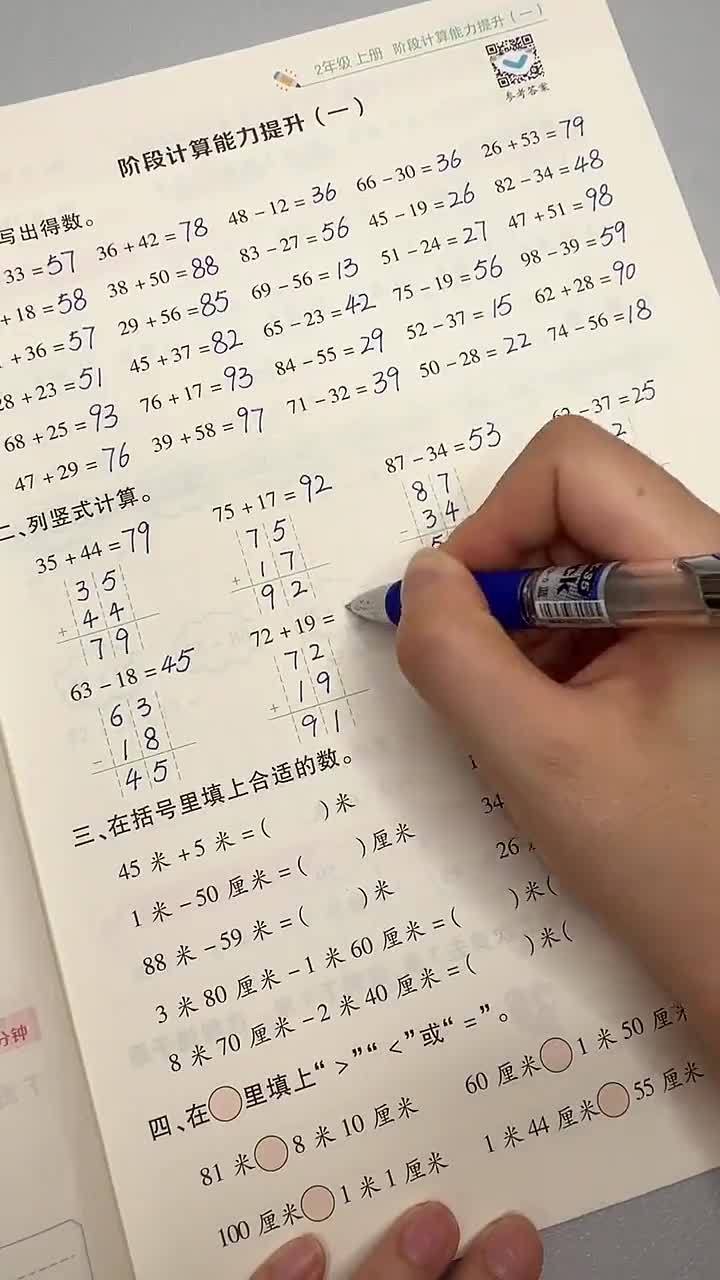 2年级 上册 阶段计算能力提升(一)
参考答案
阶段计算能力提升(一)
写出得数。
33=57 36+42=78 48-12=36 66-30=36 26+53=79
+18=58 38+50=88 83-27=56 45-19=26 82-34=48
+36=57 29+56=85 69-56=13 51-24=27 47+51=98
28+23=51 45+37=82 65-23=42 75-19=56 98-39=59
68+25=93 76+17=93 84-55=29 52-37=15 62+28=90
47+29=76 39+58=97 71-32=39 50-28=22 74-56=18
二、列竖式计算。
35+44=79 75+17=92 87-34=53 -37=25
35 75 87 2
+44 +17 -34
79 92 5
63-18=45 72+19=
63 72
-18 +19
45 91
三、在括号里填上合适的数。
45 米+5 米=( )米
1 米-50 厘米=( )厘米 34
88 米-59 米=( )米 26
3 米 80 厘米-1 米 60 厘米=( )米(
8 米 70 厘米-2 米 40 厘米=( )米(
四、在○里填上“>”“<”或“=”。
81 米○8 米 10 厘米 60 厘米○1 米 50 厘米
100 厘米○1 米 1 厘米 1 米 44 厘米○55 厘米
分钟